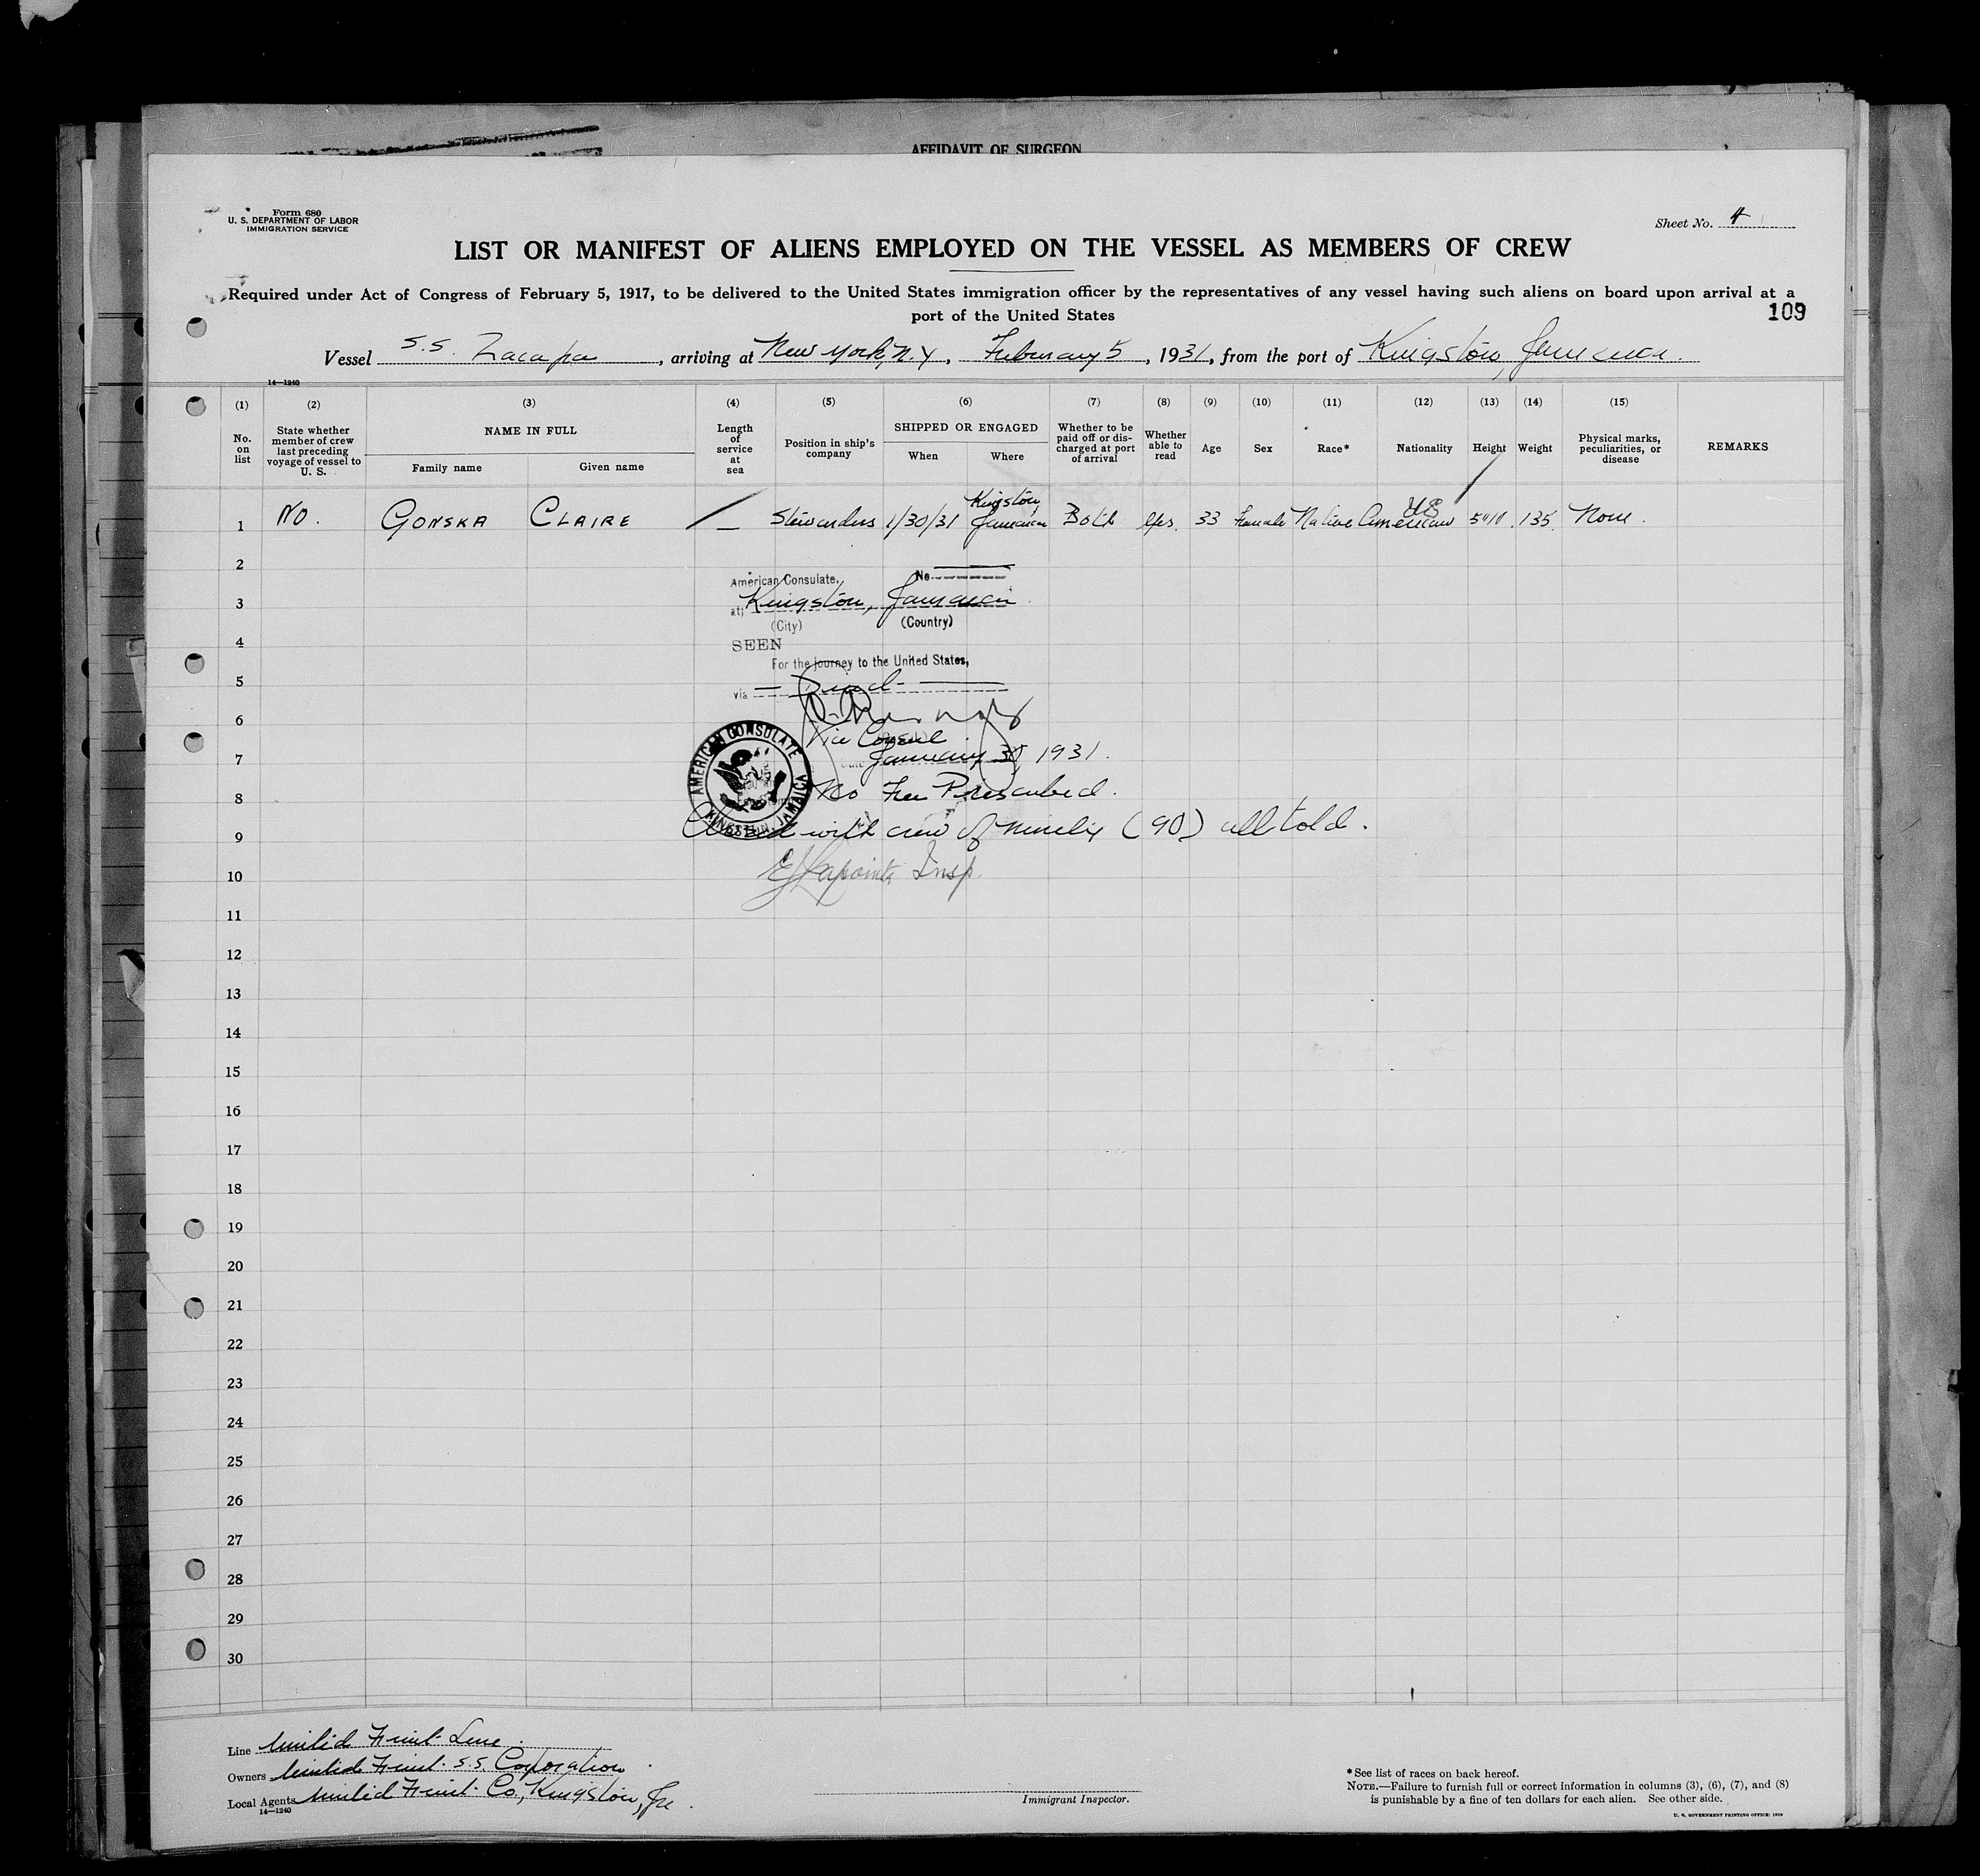 AFFIDAVIT OF SURGEON
Form 680
U. S. DEPARTMENT OF LABOR
IMMIGRATION SERVICE
Sheet No. 4
LIST OR MANIFEST OF ALIENS EMPLOYED ON THE VESSEL AS MEMBERS OF CREW
Required under Act of Congress of February 5, 1917, to be delivered to the United States immigration officer by the representatives of any vessel having such aliens on board upon arrival at a
port of the United States
109
Vessel S.S. Zacapa, arriving at New York, N.Y., February 5, 1931, from the port of Kingston, Jamaica.
14—1240
(1) (2) (3) (4) (5) (6) (7) (8) (9) (10) (11) (12) (13) (14) (15)
No. on list
State whether member of crew last preceding voyage of vessel to U. S.
NAME IN FULL
Family name
Given name
Length of service at sea
Position in ship's company
SHIPPED OR ENGAGED
When
Where
Whether to be paid off or discharged at port of arrival
Whether able to read
Age
Sex
Race*
Nationality
Height
Weight
Physical marks, peculiarities, or disease
REMARKS
1 No. GONSKA CLAIRE — Stewardess 1/30/31 Kingston, Jamaica Both Yes. 33 Female Native American US 5'11" 135. None.
2
American Consulate, No.
3
at Kingston, Jamaica
(City) (Country)
4
SEEN
For the journey to the United States,
5
via
6
Vice Consul
7
January 30, 1931.
AMERICAN CONSULATE
KINGSTON, JAMAICA
8
No Fee Prescribed.
9
with crew of ninety (90) all told.
10
EJ Lapointe Insp.
11
12
13
14
15
16
17
18
19
20
21
22
23
24
25
26
27
28
29
30
Line United Fruit Line.
Owners United Fruit S.S. Corporation.
Local Agents United Fruit Co., Kingston, Ja.
14—1240
Immigrant Inspector.
* See list of races on back hereof.
NOTE.—Failure to furnish full or correct information in columns (3), (6), (7), and (8)
is punishable by a fine of ten dollars for each alien. See other side.
U. S. GOVERNMENT PRINTING OFFICE: 1929